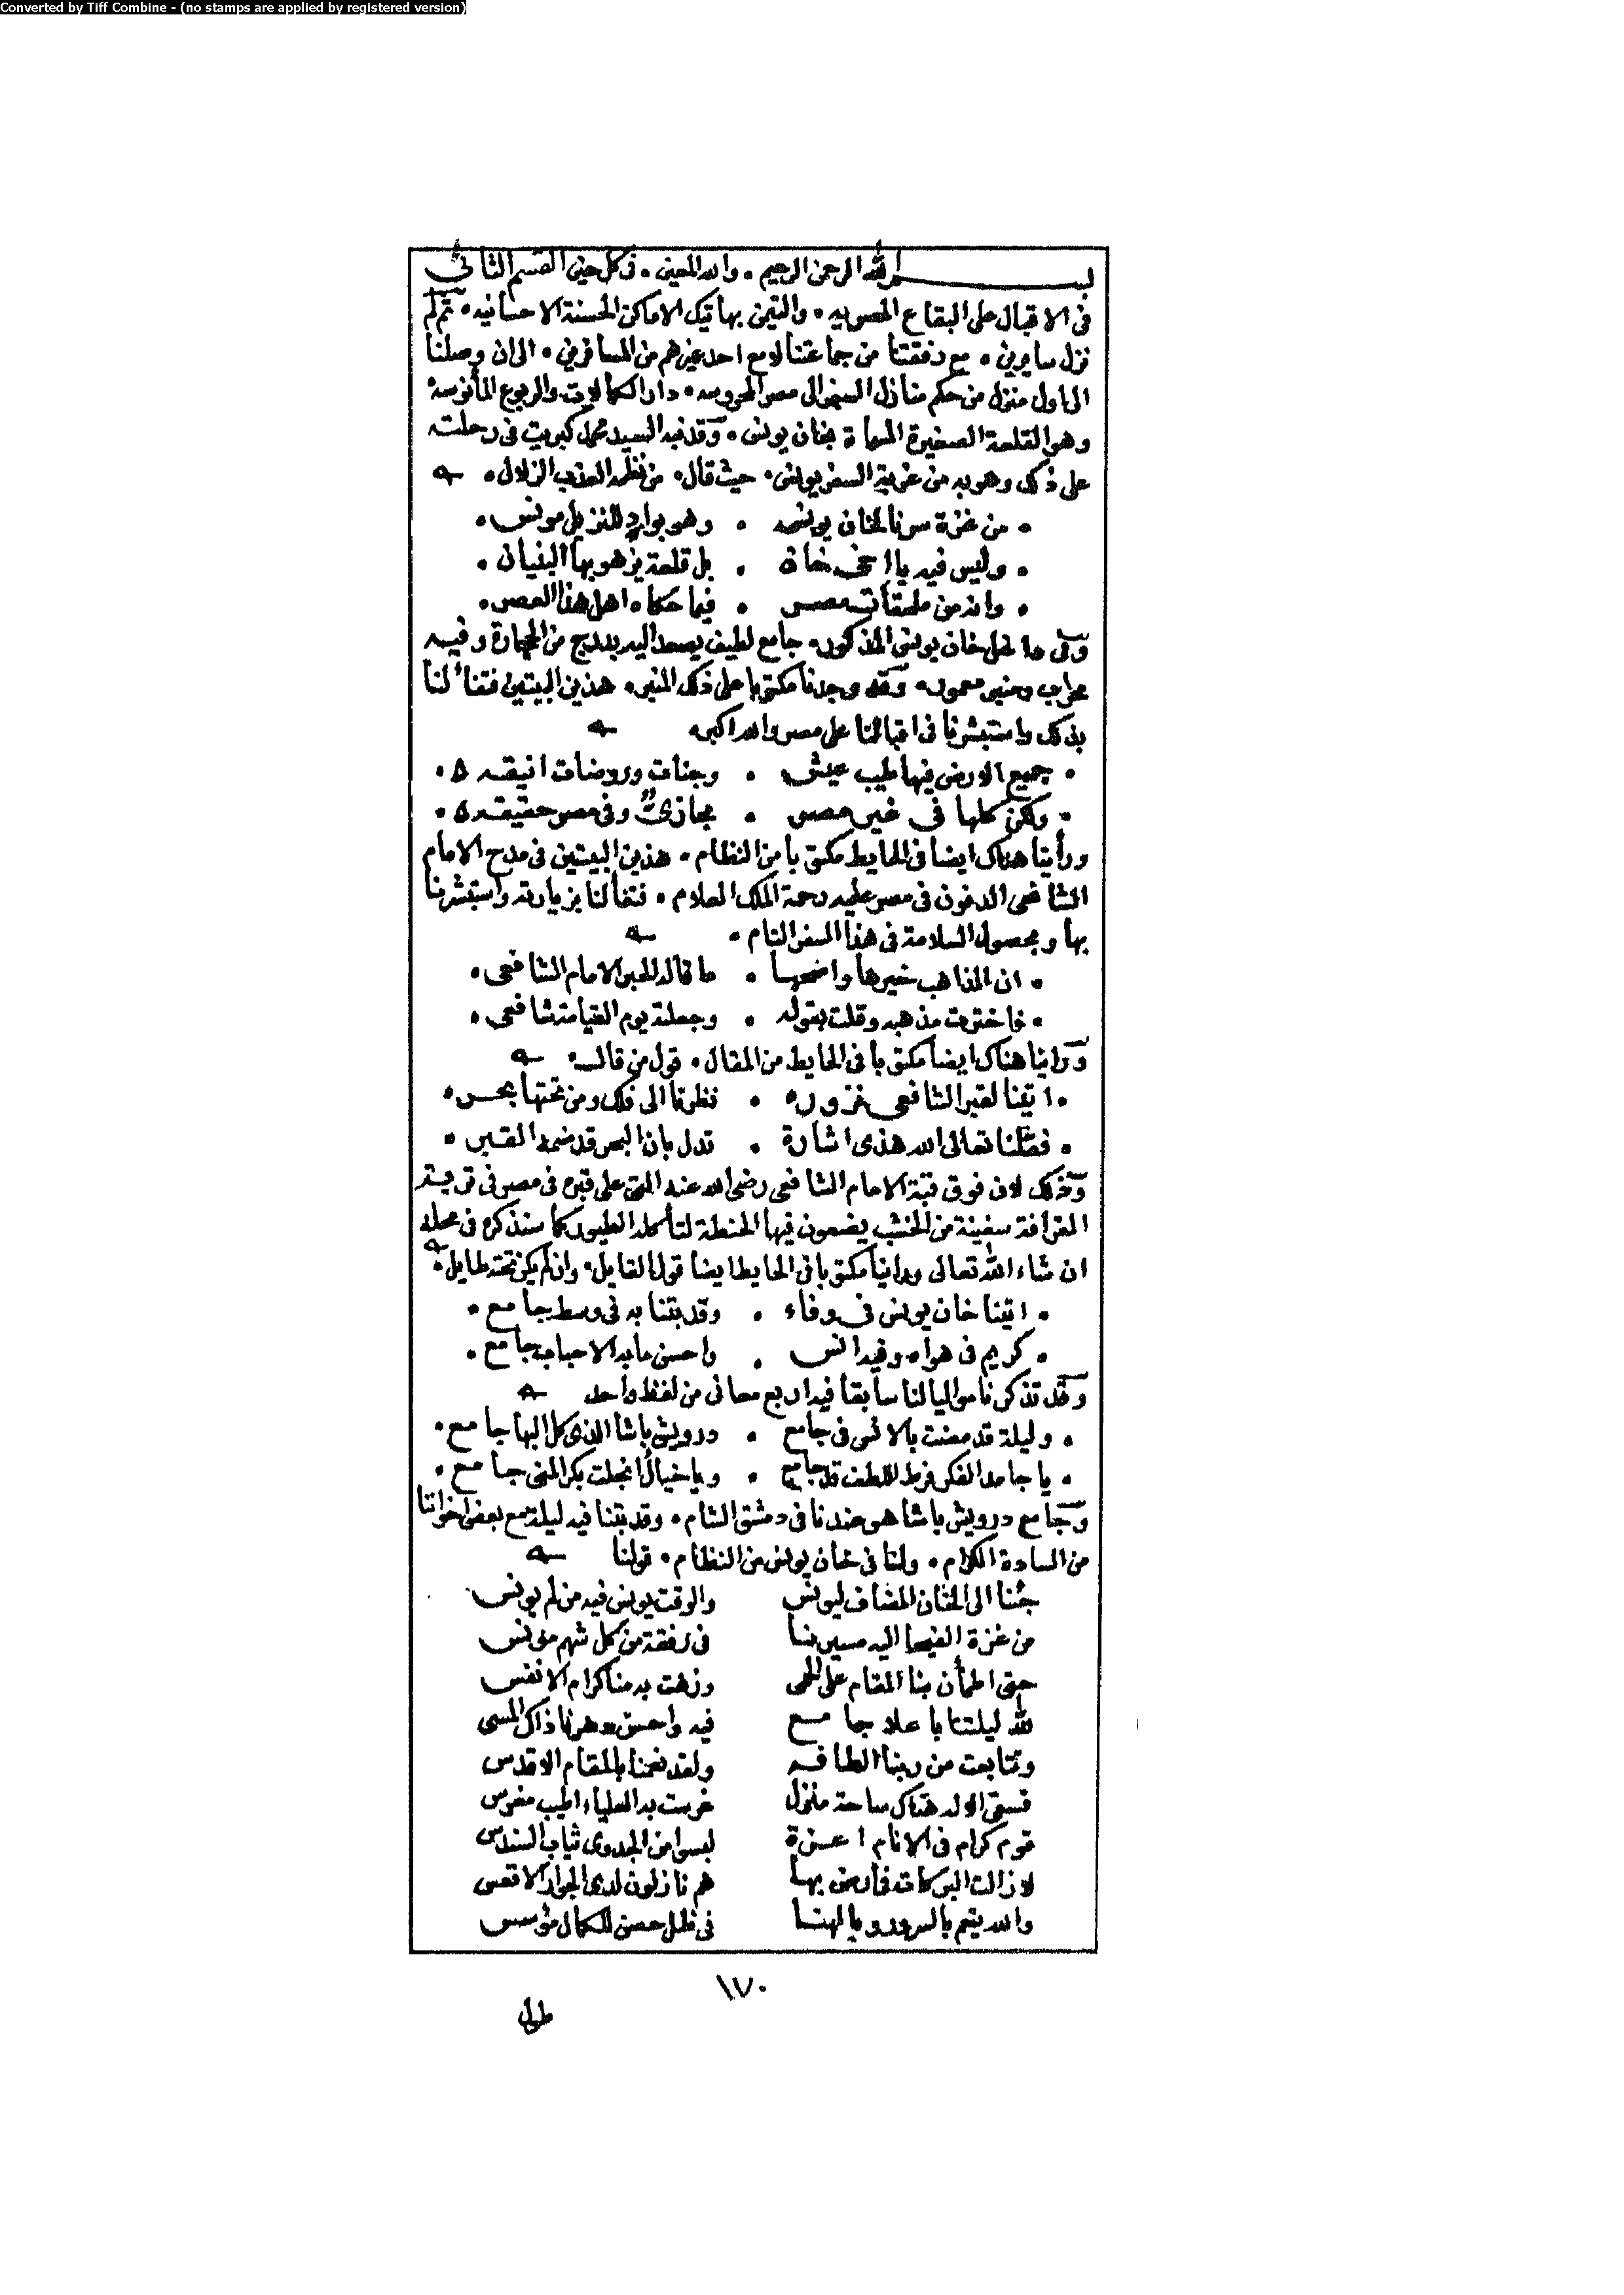 Converted by Tiff Combine - (no stamps are applied by registered version)
بسم الله الرحمن الرحيم • والله المعين • في كل حين القسم الثاني
في الاقبال على البقاع المصريه • والتيمن بهاتيك الاماكن الحسنة الاحسانيه • ثم لم
نزل سايرين • مع رفقتنا من جماعتنا لا مع احد غيرهم من المسافرين • الى ان وصلنا
الى اول منزل من حكم منازل السفر الى مصر المحروسه • دار الكمالات والربوع المأنوسة
وهو القلعة الصغيرة المسماة بخان يونس • وقد نبه السيد محمد كبريت في رحلته
على ذلك وهو به من غربة السفر يونس • حيث قال • من نظمه العذب الزلال •
• من غزة سرنا لخان يونس • وهو بواد للنزيل مونس •
• وليس فيه يا اخى خان • بل قلعة يزهو بها البنيان •
• وانه من ملحقات مصر • فيما حكاه اهل هذا العصر •
وفي داخل خان يونس المذكور • جامع لطيف يصعد اليه بدرج من الحجارة وفيه
محراب ومنبر معمور • وقد وجدنا مكتوبا على ذلك المنبر • هذين البيتين فتفأ لنا
بذلك واستبشرنا في اقبالنا على مصر والله اكبر •
• جميع الارض فيها طيب عيش • وجنات وروضات انيقه •
• ولكن كلها في غير مصر • مجازي وفي مصر حقيقه •
ورأينا هناك ايضا في الحايط مكتوبا من النظام • هذين البيتين في مدح الامام
الشافعي المدفون في مصر عليه رحمة الملك العلام • فتفألنا بزيارته واستبشرنا
بها وبحصول السلامة في هذا السفر التام •
• ان المذاهب خيرها واضحها • ما قاله الحبر الامام الشافعي •
• فاخترت مذهبه وقلت بقوله • وجعلته يوم القيامة شافعي •
ورأينا هناك ايضا مكتوبا في الحايط من المقال • قول من قال •
• اتينا لقبر الشافعي نزوره • نظرنا الى فلك ومن تحتها بحر •
• فقلنا تعالى الله هذى اشارة • تدل بان البحر قد ضمه القبر •
وذلك لان فوق قبة الامام الشافعي رضي الله عنه التي على قبره في مصر في تربته
القرافة سفينة من الخشب يضعون فيها الحنطة لتأكله الطيور كما سنذكره في محله
ان شاء الله تعالى ورأينا مكتوبا في الحايط ايضا قول القايل • وان لم يكن تحته طايل •
• اتينا خان يونس في وفاء • وقد بتنا به في وسط جامع •
• كريم في هواه وفيه انس • واحسن ما به الاحباب جامع •
وقد تذكرنا مواليا لنا سابقا فيه اربع معاني من لفظ واحد
• وليلة قد مضت بالانس في جامع • درويش باشا الذى كل البها جامع •
• يا جامد الفكر فرط اللطف قد جامع • ويا خيالا انجلت بكر المنى جامع •
وجامع درويش باشا هو عندنا في دمشق الشام • وقد بتنا فيه ليلة مع بعض اخواننا
من السادة الكرام • ولنا في خان يونس من النظام • قولنا
جئنا الى الخان المضاف ليونس والوقت يونس فيه من لم يونس
من غزة الفيحا اليه مسيرنا في رفقة من كل شهم مونس
حتى اطمأن بنا المقام على الحمى وزهت به منا كرام الانفس
لله ليلتنا باعلا جامع فيه واحسن دهرنا ذاك المسى
وتتابعت من ربنا الطافه ولقد نعمنا بالمقام الاقدس
فسقى الاله هناك ساحة منزل غرست به العلياء اطيب مغرس
قوم كرام في الانام اعزة لبسوا من الجدوى ثياب السندس
لا زالت البركات فى ارض بها هم نازلون لدى الجوار الاقعس
والله يتم بالسرور وبالهنا في ظل حصن للكمال مؤسس
١٧٠